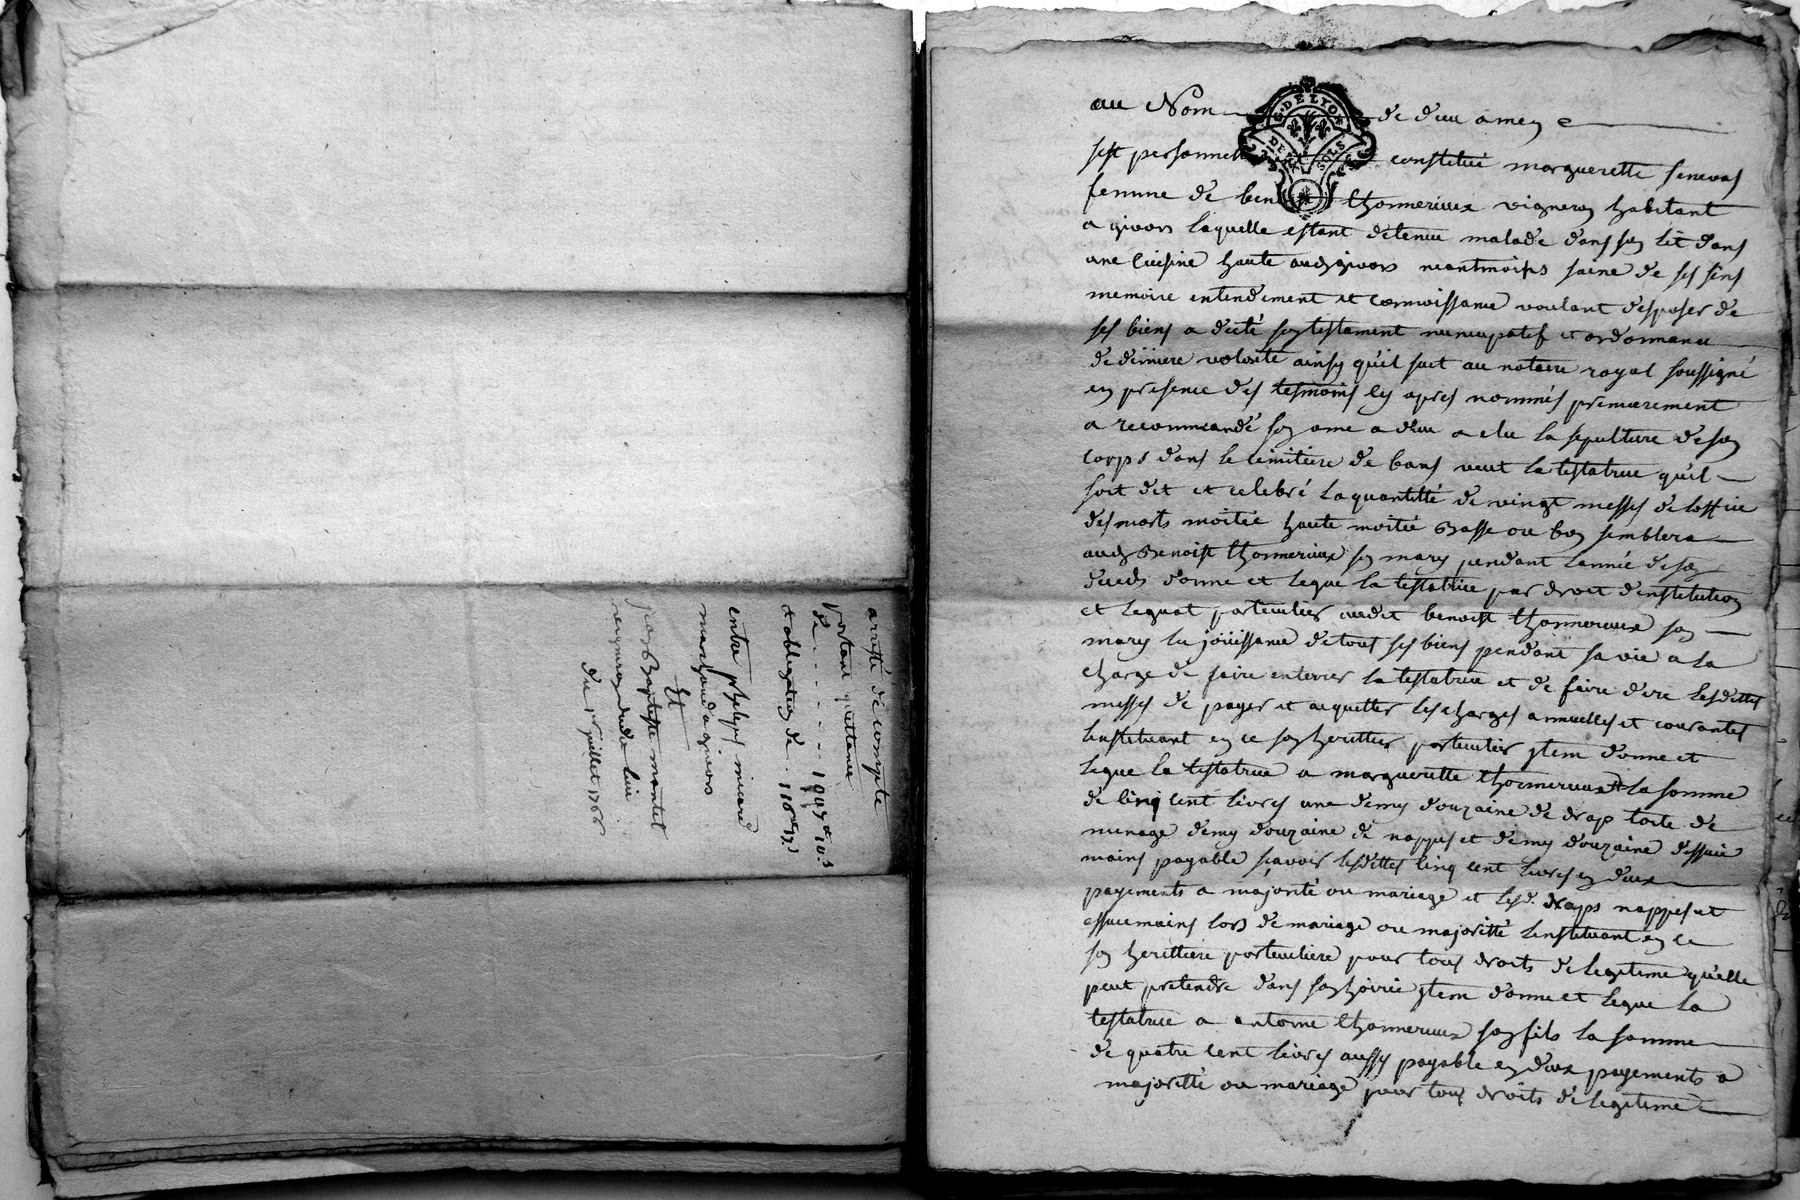 arresté de compte
portant quittance
de - - - - - 1997# 10.s
et obligation de . 116# 17s
entre phelipes micard
marchand a givors
Et
jean Baptiste montel
vigneron dudit lieu
du 1r juillet 1766
au Nom de dieu amen
G. DE LYON
DEUX SOLS
sest personnel constitué marguerette senevas
femme de ben thonnerieux vigneron habitant
a givors laquelle estant detenue malade dans son lit dans
une cuisine haute audit givors neantmoins saine de ses sens
memoire entendement et connoissance voulant desposer de
ses biens a dicté son testament nuncupatif et ordonnance
de derniere volonté ainsy quil suit au notaire royal soussigné
en presence des tesmoins cy apres nommés premierement
a recommandé son ame a dieu a elu la sepulture de son
corps dans le cimitiere de bans veut la testatrice quil
soit dit et celebré la quantitté de vingt messes de loffice
des morts moitié haute moitié Basse ou bon semblera
audit Benoist thonnerieux son mary pendant lannée de son
deceds donne et legue la testatrice par droit dinstitution
et leguat particulier audit benoist thonnerieux son
mary la joüissance de tout ses biens pendant sa vie a la
charge de faire enterrer la testatrice et de faire dire lesdittes
messes de payer et aquitter les charges annuelles et courantes
linstituant en ce son herittier particulier jtem donne et
legue la testatrice a marguerette thonnerieux la somme
de cinq cent livres une demy douzaine de drap toile de
menage demy douzaine de nappes et demy douzaine dessuie
mains payable scavoir lesdittes cinq cent livres en deux
payements a majorité ou mariage et lesd. draps nappes et
essuiemains lors de mariage ou majoritté linstituant en ce
son herittiere particuliere pour tous droits de legitime quelle
peut pretendre dans son hoirie jtem donne et legue la
testatrice a antoine thonnerieux son fils la somme
de quatre cent livres aussy payable en deux payements a
majoritté ou mariage pour tous droits de legitime